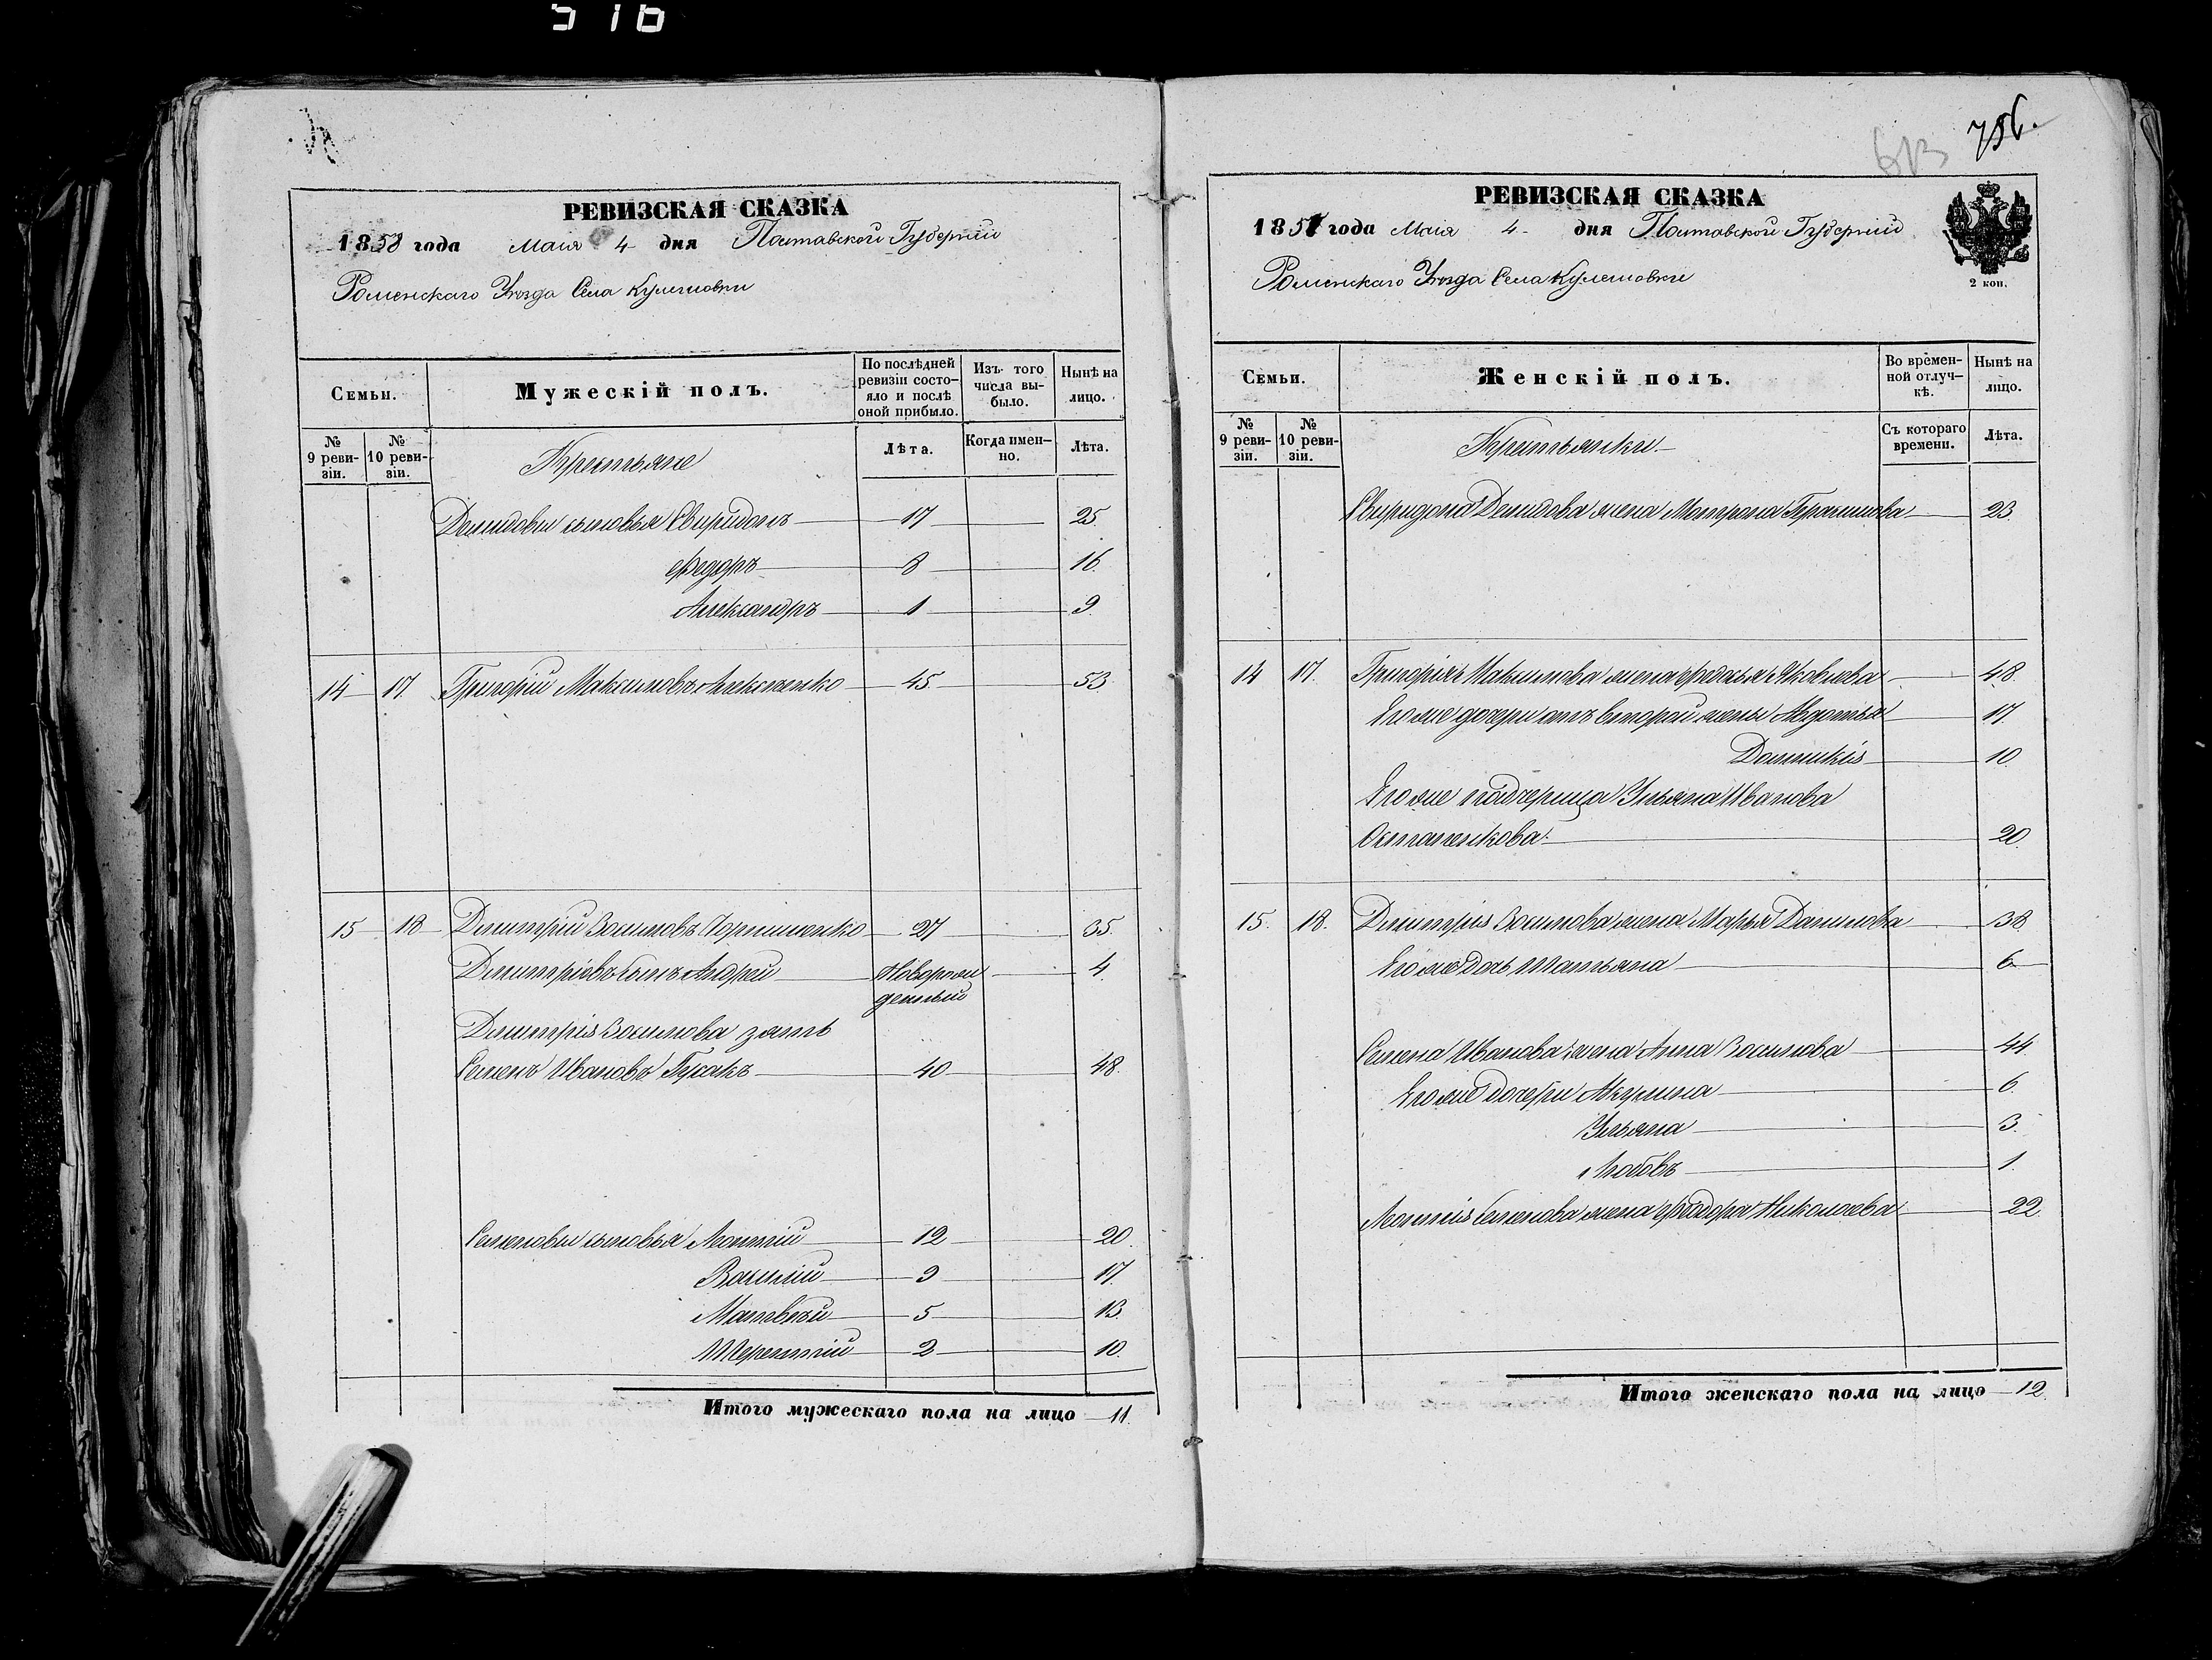 516
РЕВИЗСКАЯ СКАЗКА
1858 года Маія 4 дня Полтавской Губерніи
Роменскаго Уѣзда Села Кулешовки
Семьи.
Мужескій полъ.
По послѣдней ревизіи состо-
яло и послѣ
оной прибыло.
Изъ того
числа вы-
было.
Нынѣ на
лицо.
№
9 реви-
зіи.
№
10 реви-
зіи.
Крестьяне
Лѣта.
Когда имен-
но.
Лѣта.
Демидовы сыновья Свиридонъ 17 25.
Федоръ 8 16.
Александръ 1 9
14 17. Григорій Максимовъ Алексѣенко 45. 53
15 18 Димитрій Зосимовъ 27 35.
Димитріевъ сынъ Андрей Новорож 4.
денный
Димитрія Зосимова зять
Семенъ Ивановъ Гусакъ 40 48.
Семеновы сыновья Леонтій 12 20.
Василій 9 17.
Матвѣй 5 13.
Терентій 2 10.
Итого мужескаго пола на лицо 11.
613 756.
РЕВИЗСКАЯ СКАЗКА
1858 года Маія 4 дня Полтавской Губерніи
Роменскаго Уѣзда Села Кулешовки
2 коп.
Семьи.
Женскій полъ.
Во времен-
ной отлуч-
кѣ.
Нынѣ на
лицо.
№
9 реви-
зіи.
№
10 реви-
зіи.
Крестьянки
Съ котораго
времени.
Лѣта.
Свиридона Демидова жена Мотрона Герасимова 23.
14 17. Григорія Максимова жена Федосья Яковлева 48.
Его же дочери отъ второй жены Авдотья 17.
Домникія 10.
Его же падчерица Ульяна Иванова
Остапенкова 20.
15. 18. Димитрія Зосимова жена Марья Данилова 38
Его же дочь Татьяна 6
Семена Иванова жена Анна Зосимова 44
Его же дочери Акулина 6.
Ульяна 3.
Любовь 1.
Леонтія Семенова жена Федора Николаева 22.
Итого женскаго пола на лицо 12.